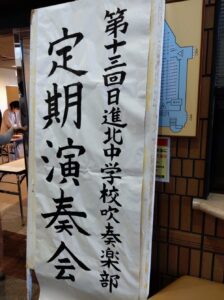 第十三回日進北中学校吹奏楽部
定期演奏会